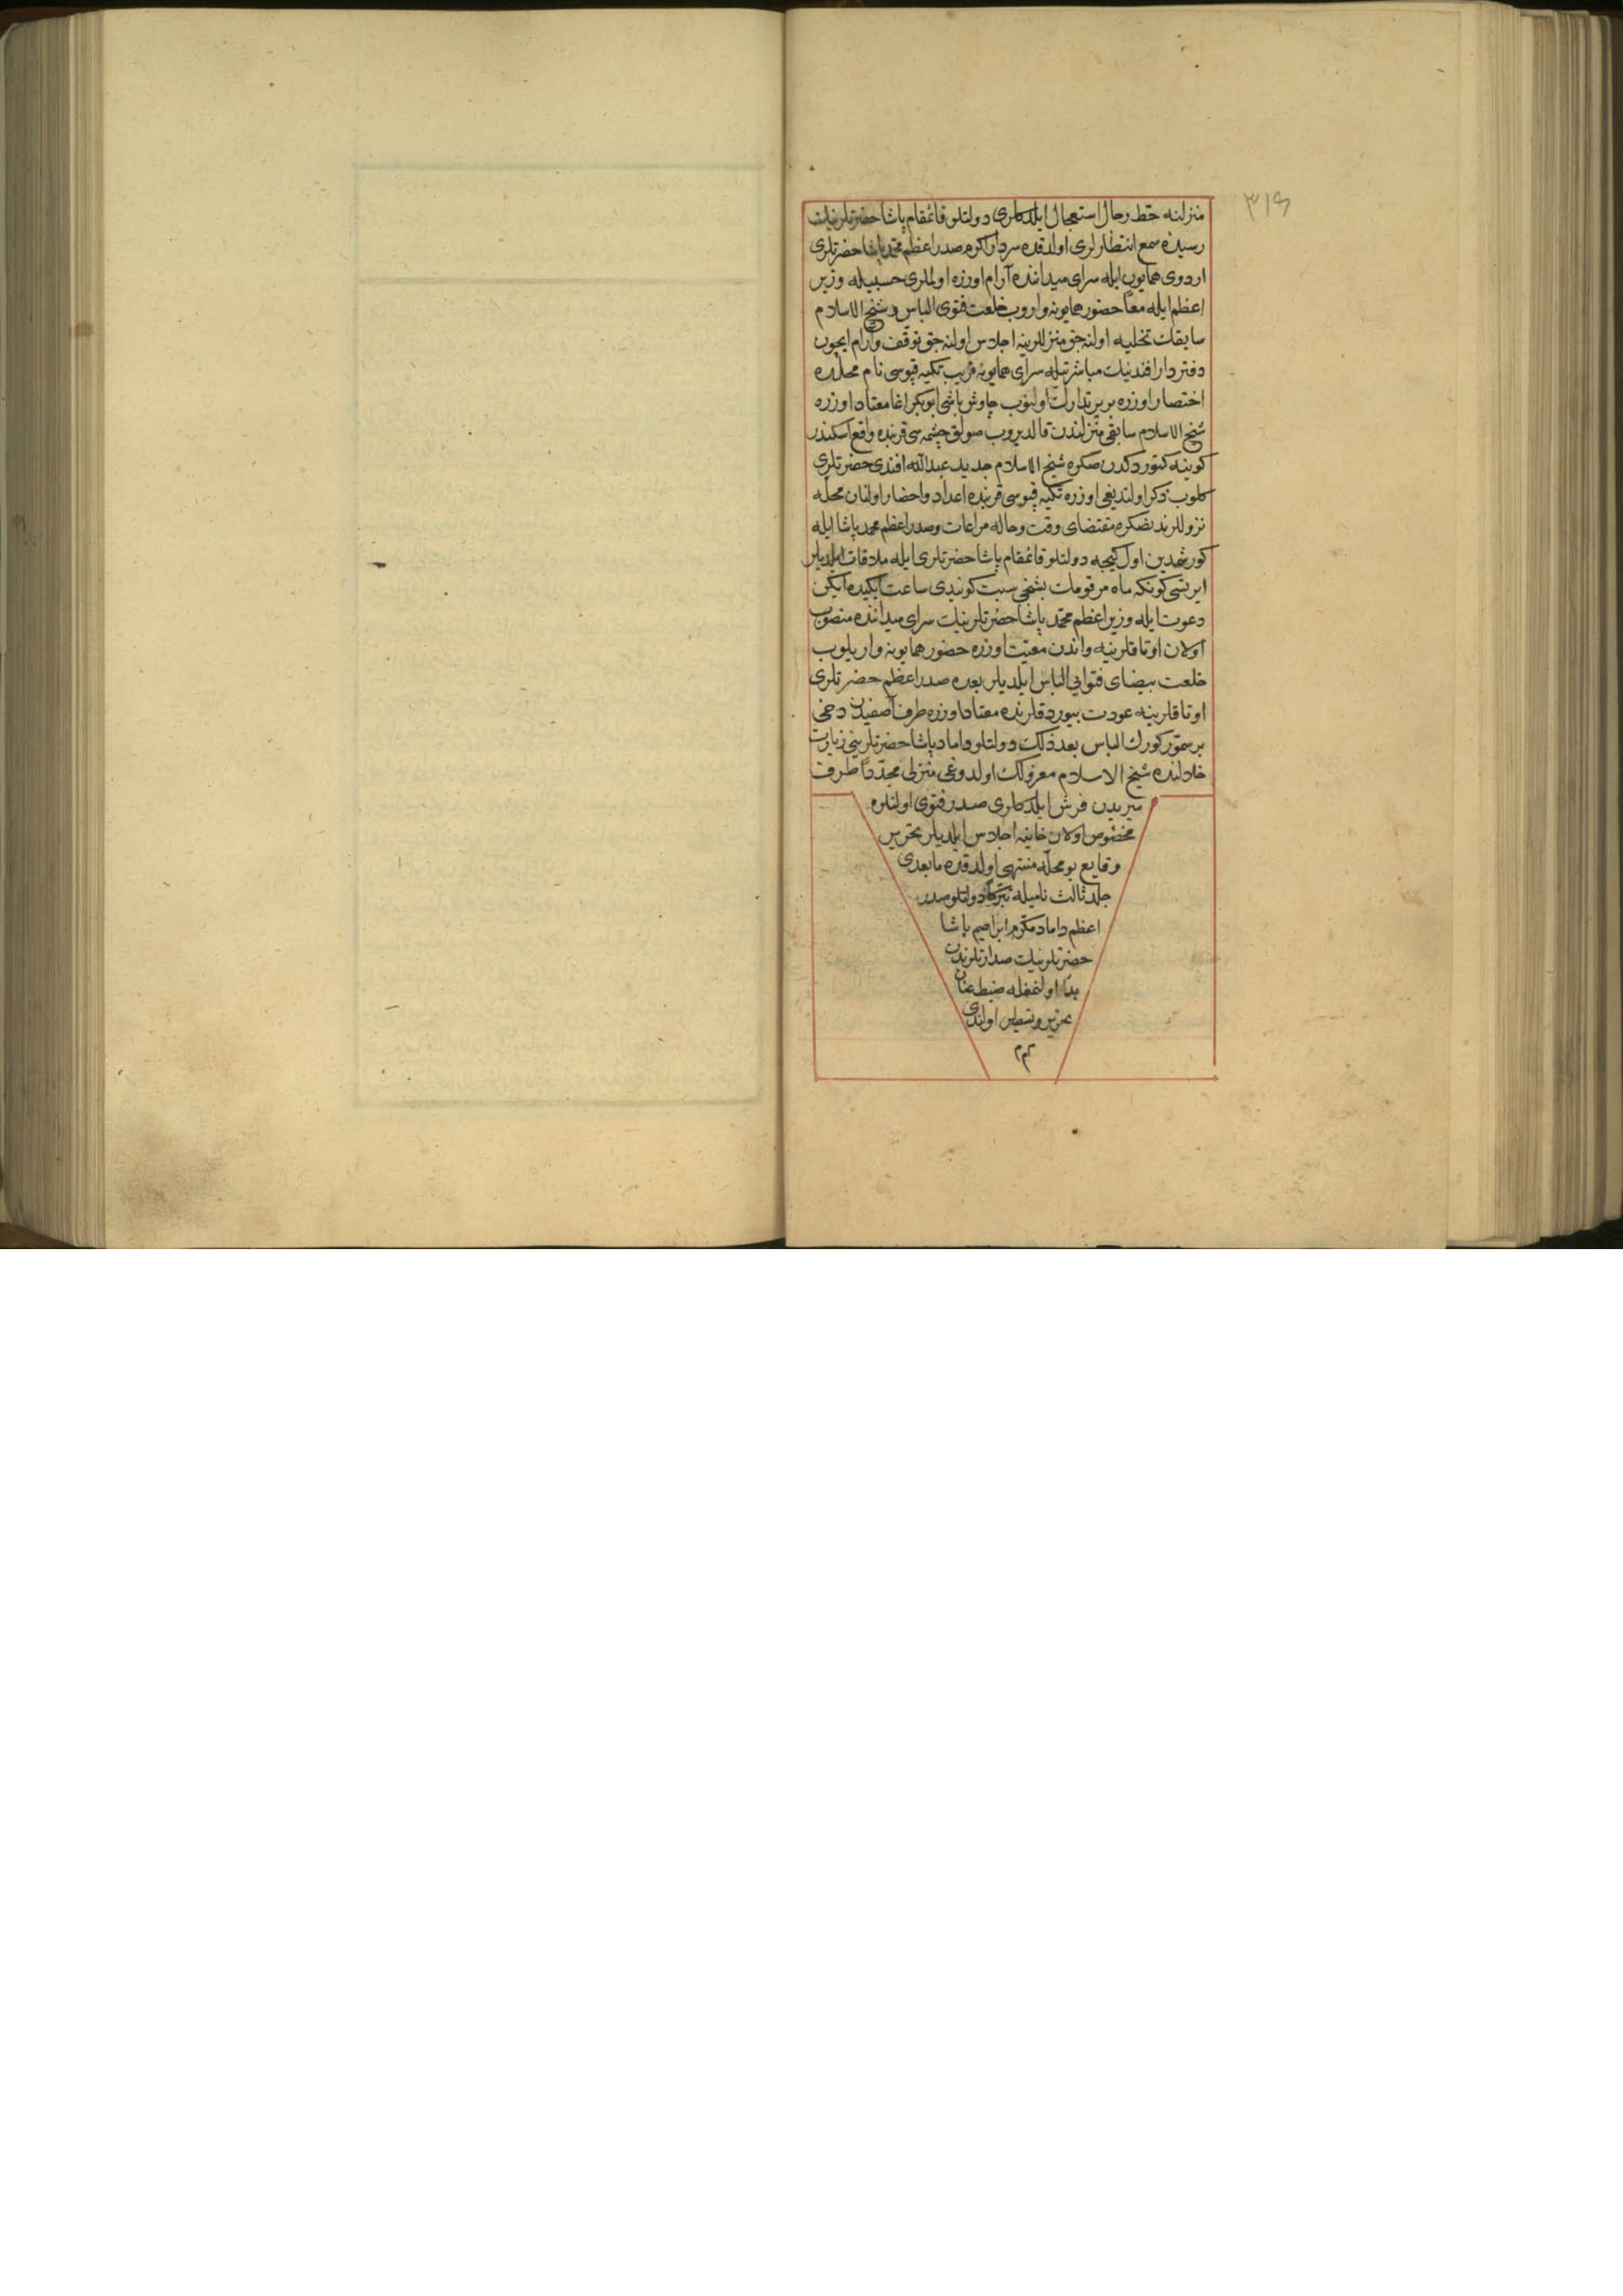 ٣١٩
منزلنه حط رحال استعجال ایلدکلری دولتلو قائمقام پاشا حضرتلرینك
رسیدهٔ سمع انتظارلری اولدقده سردار اکرم صدر اعظم محمد پاشا حضرتلری
اردوی همایون ایله سرای میداننده آرام اوزره اولملری حسبیله وزیر
اعظم ایله معًا حضور همایونه واروب خلعت فتوی الباس و شیخ الاسلام
سابقك تخلیه اولنه جق منزللرینه اجلاس اولنه جق توقف وآرام ایچون
دفتردار افندینك مباشرتیله سرای همایونه قریب تکیه قپوسی نام محلده
اختصار اوزره بریر تدارك اولنوب چاوش باشی ابوبکر اغا معتاد اوزره
شیخ الاسلام سابقی منزلندن قالدیروب صولق چشمه سی قربنده واقع اسکندر
کوینه کتوردکدن صکره شیخ الاسلام جدید عبدالله افندی حضرتلری
کلوب ذکر اولندیغی اوزره تکیه قپوسی قربنده اعداد واحضار اولنان محله
نزوللرندنصکره مقتضای وقت وحاله مراعات وصدر اعظم محمد پاشا ایله
کورشمدین اول کیجه دولتلو قائمقام پاشا حضرتلری ایله ملاقات ایلدیلر
ایرتسی کونکه ماه مرقومك بشنجی سبت کونیدی ساعت ایکیده ایکن
دعوت ایله وزیر اعظم محمد پاشا حضرتلرینك سرای میداننده منصوب
اولان اوتاقلرینه واندن معیت اوزره حضور همایونه واریلوب
خلعت بیضای فتوایی الباس ایلدیلر بعده صدر اعظم حضرتلری
اوتاقلرینه عودت بیوردقلرنده معتاد اوزره طرف آصفیدن دخی
بر سمور کورك الباس بعد ذلك دولتلو داماد پاشا حضرتلرینی زیارت
خلالنده شیخ الاسلام معزولك اولدوغی منزلی مجددًا طرف
میریدن فرش ایلدکلری صدر فتوی اولنلره
مخصوص اولان خانیه اجلاس ایلدیلر تحریر
وقایع بو محله منتهی اولدقده مابعدی
جلد ثالث نامیله تبرکًا دولتلو صدر
اعظم داماد مکرم ابراهیم پاشا
حضرتلرینك صدارتلرندن
بدأ اولنمغله ضبط عنان
تحریر وتسطیر اولندی
م م